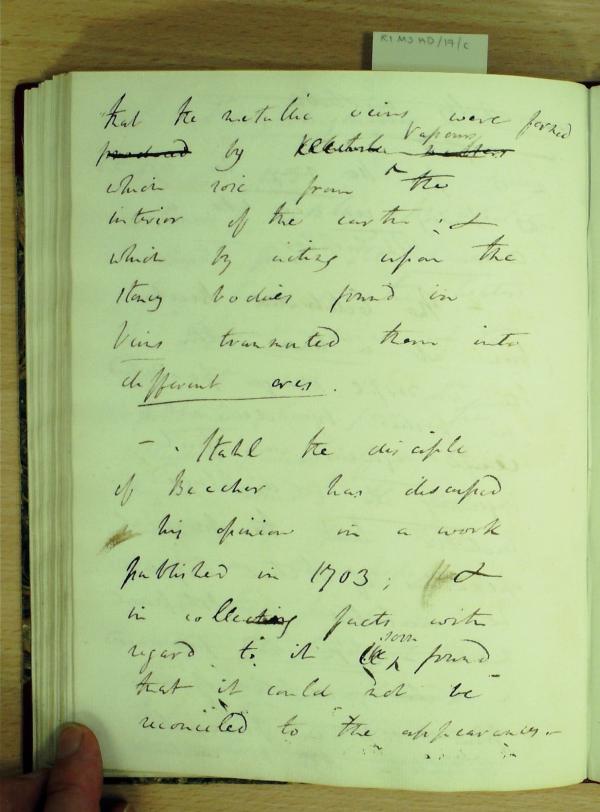 RI MS HD/14/C
that the metallic veins were formed
produced by Vapours
which rose from the
interior of the earth; &
which by acting upon the
stony bodies found in
Veins transmuted them into
different ores.
— . Stahl the disciple
of Beccher has discussed
his opinion in a work
published in 1703; &
in collecting facts with
regard to it He soon found
that it could not be
reconciled to the appearances. –